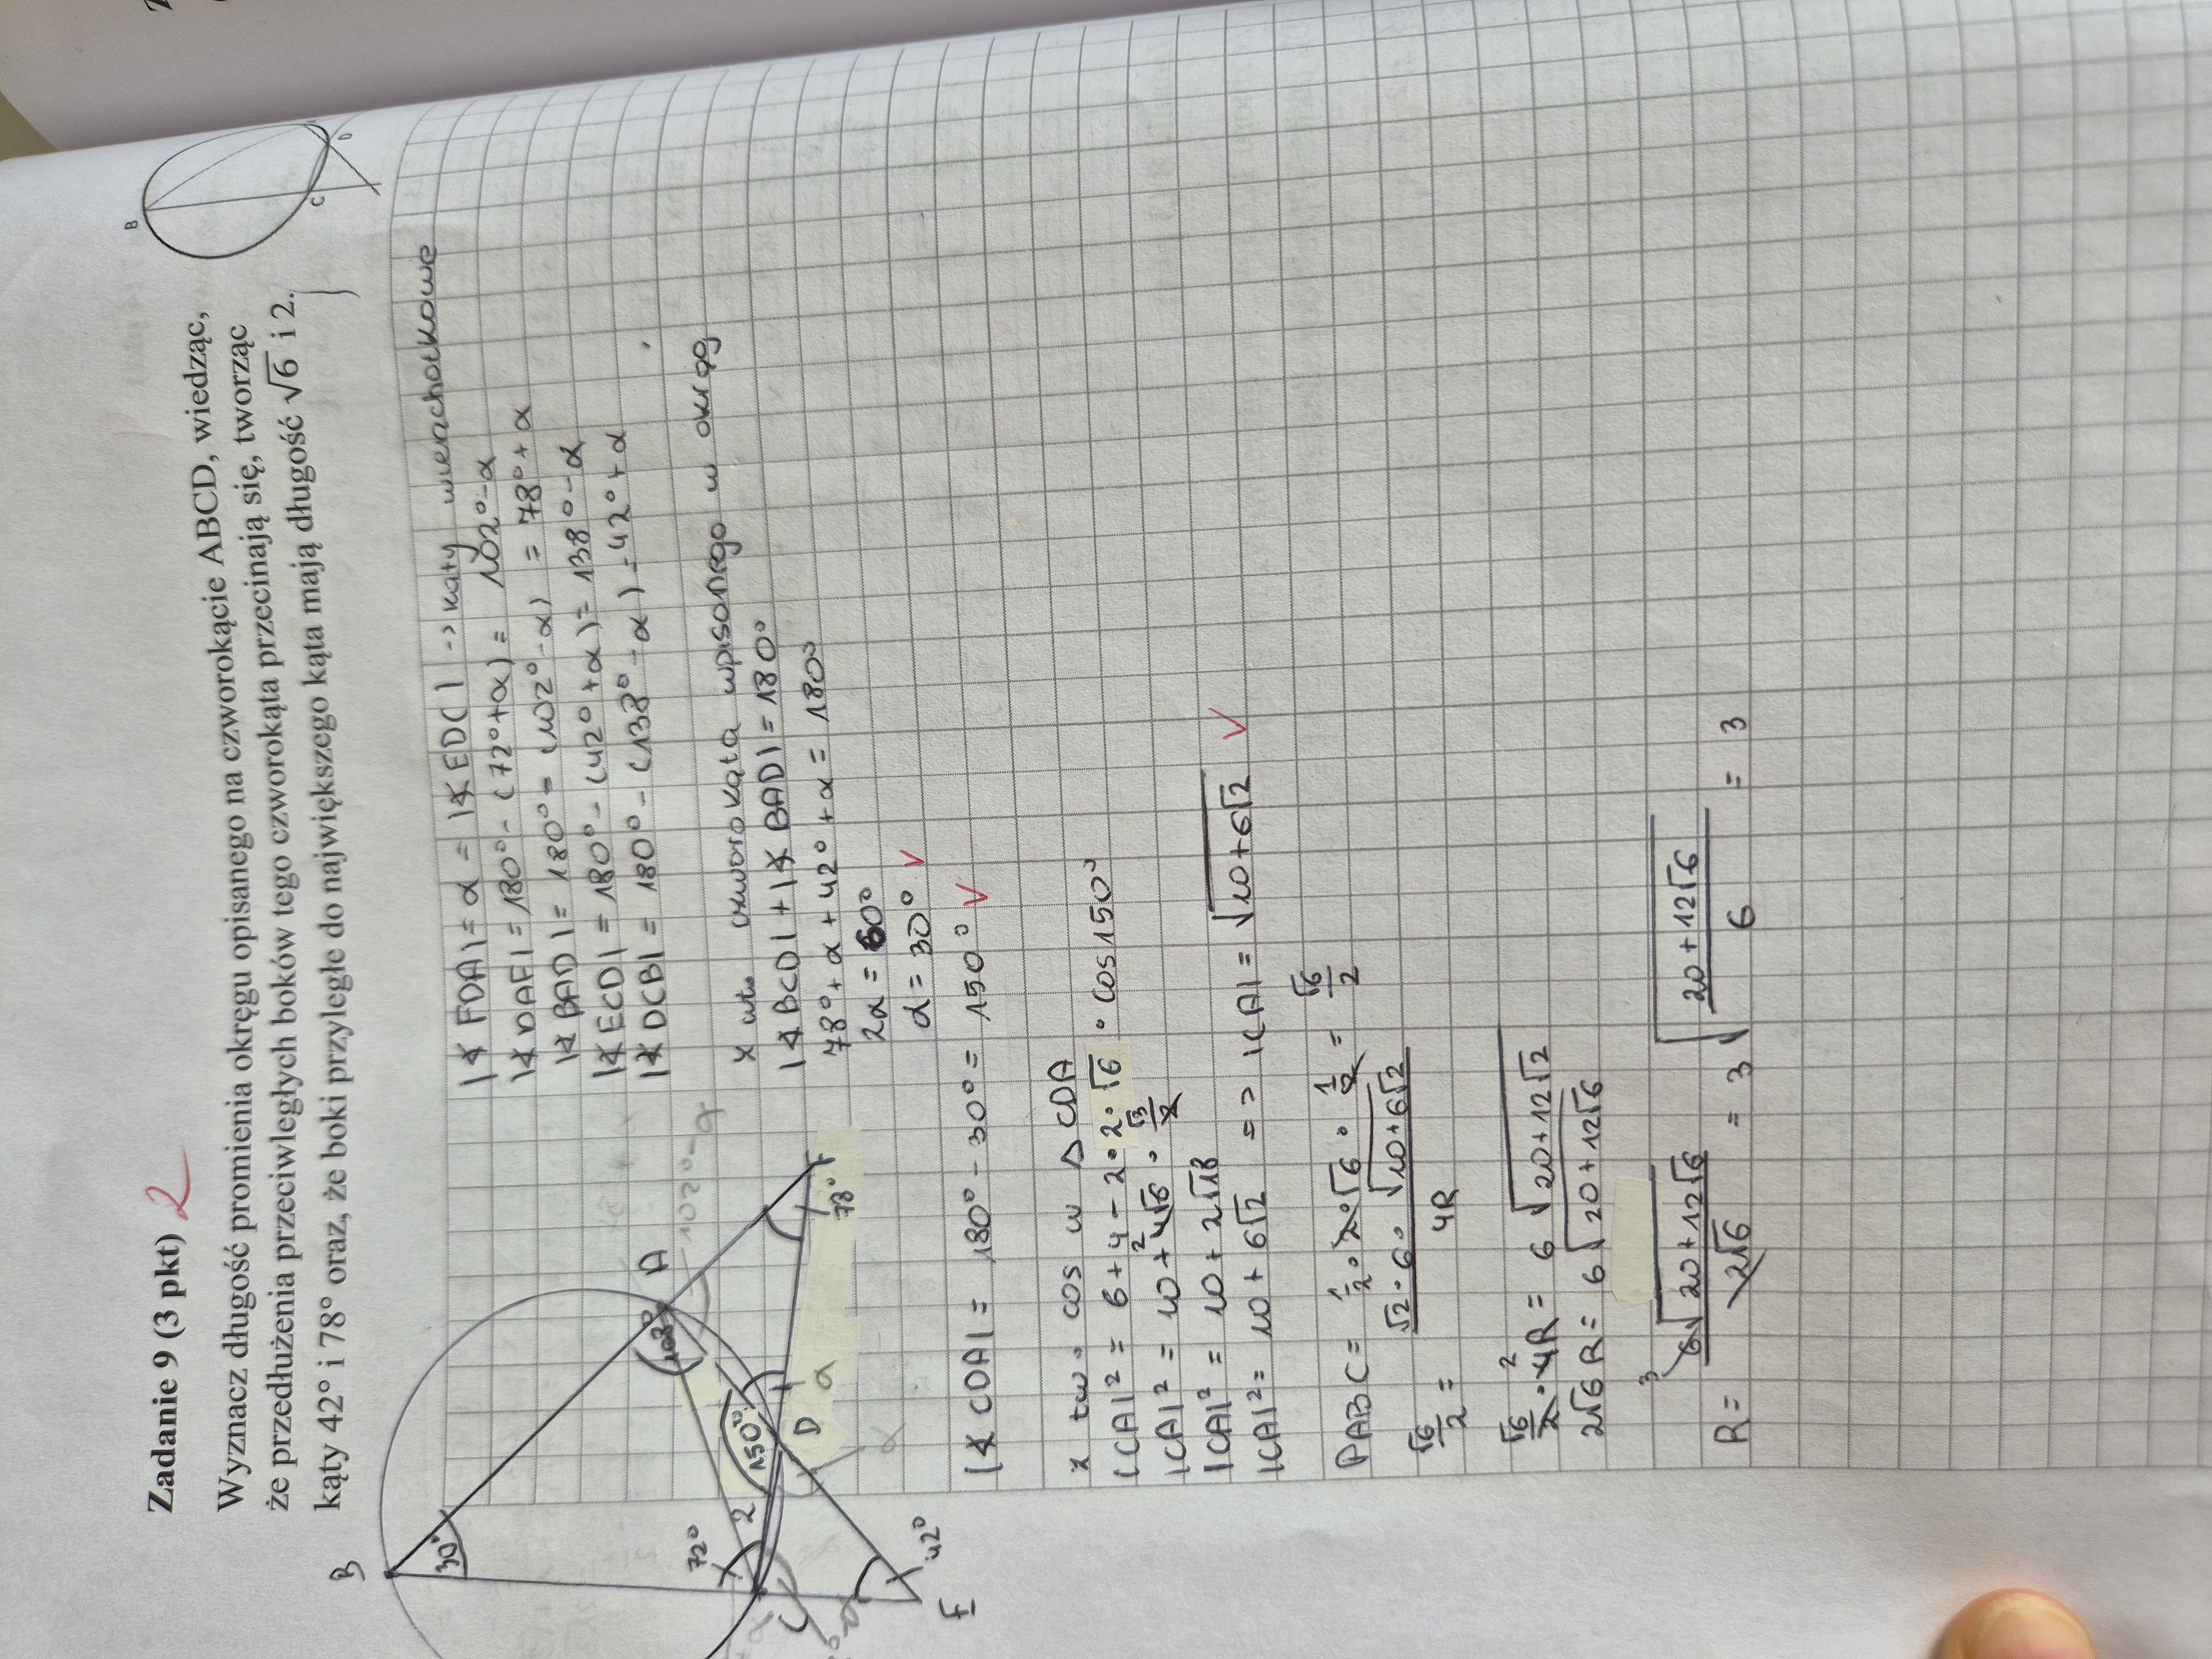 Zadanie 9 (3 pkt) 2
Wyznacz długość promienia okręgu opisanego na czworokącie ABCD, wiedząc,
że przedłużenia przeciwległych boków tego czworokąta przecinają się, tworząc
kąty 42° i 78° oraz, że boki przyległe do największego kąta mają długość √6 i 2.
B
C
D
B
30°
A
108°
102°-α
72°
2
150°
D
α
α
C
78°
F
E
42°
|∢FDA| = α = |∢EDC| -> kąty wierzchołkowe
|∢DAF| = 180° - (78°+α) = 102°-α
|∢BAD| = 180° - (102°-α) = 78°+α
|∢ECD| = 180° - (42°+α) = 138°-α
|∢DCB| = 180° - (138°-α) = 42°+α
x czworokąta wpisanego w okrąg
|∢BCD| + |∢BAD| = 180°
78°+α+42°+α = 180°
2α = 60°
α = 30° V
|∢CDA| = 180° - 30° = 150° V
x tw. cos w ΔCDA
|CA|² = 6+4-2·2·√6 · cos150°
|CA|² = 10+4√6 · √3/2
|CA|² = 10+2√18
|CA|² = 10+6√2 => |CA| = √(10+6√2) V
PABC = 1/2 · 2·√6 · 1/2 = √6/2
√6/2 = √2·6·√(10+6√2) / 4R
√6/2 · 4R = 6√(20+12√2)
2√6 R = 6√(20+12√6)
R = 6√(20+12√6) / 2√6 = 3√((20+12√6)/6) = 3